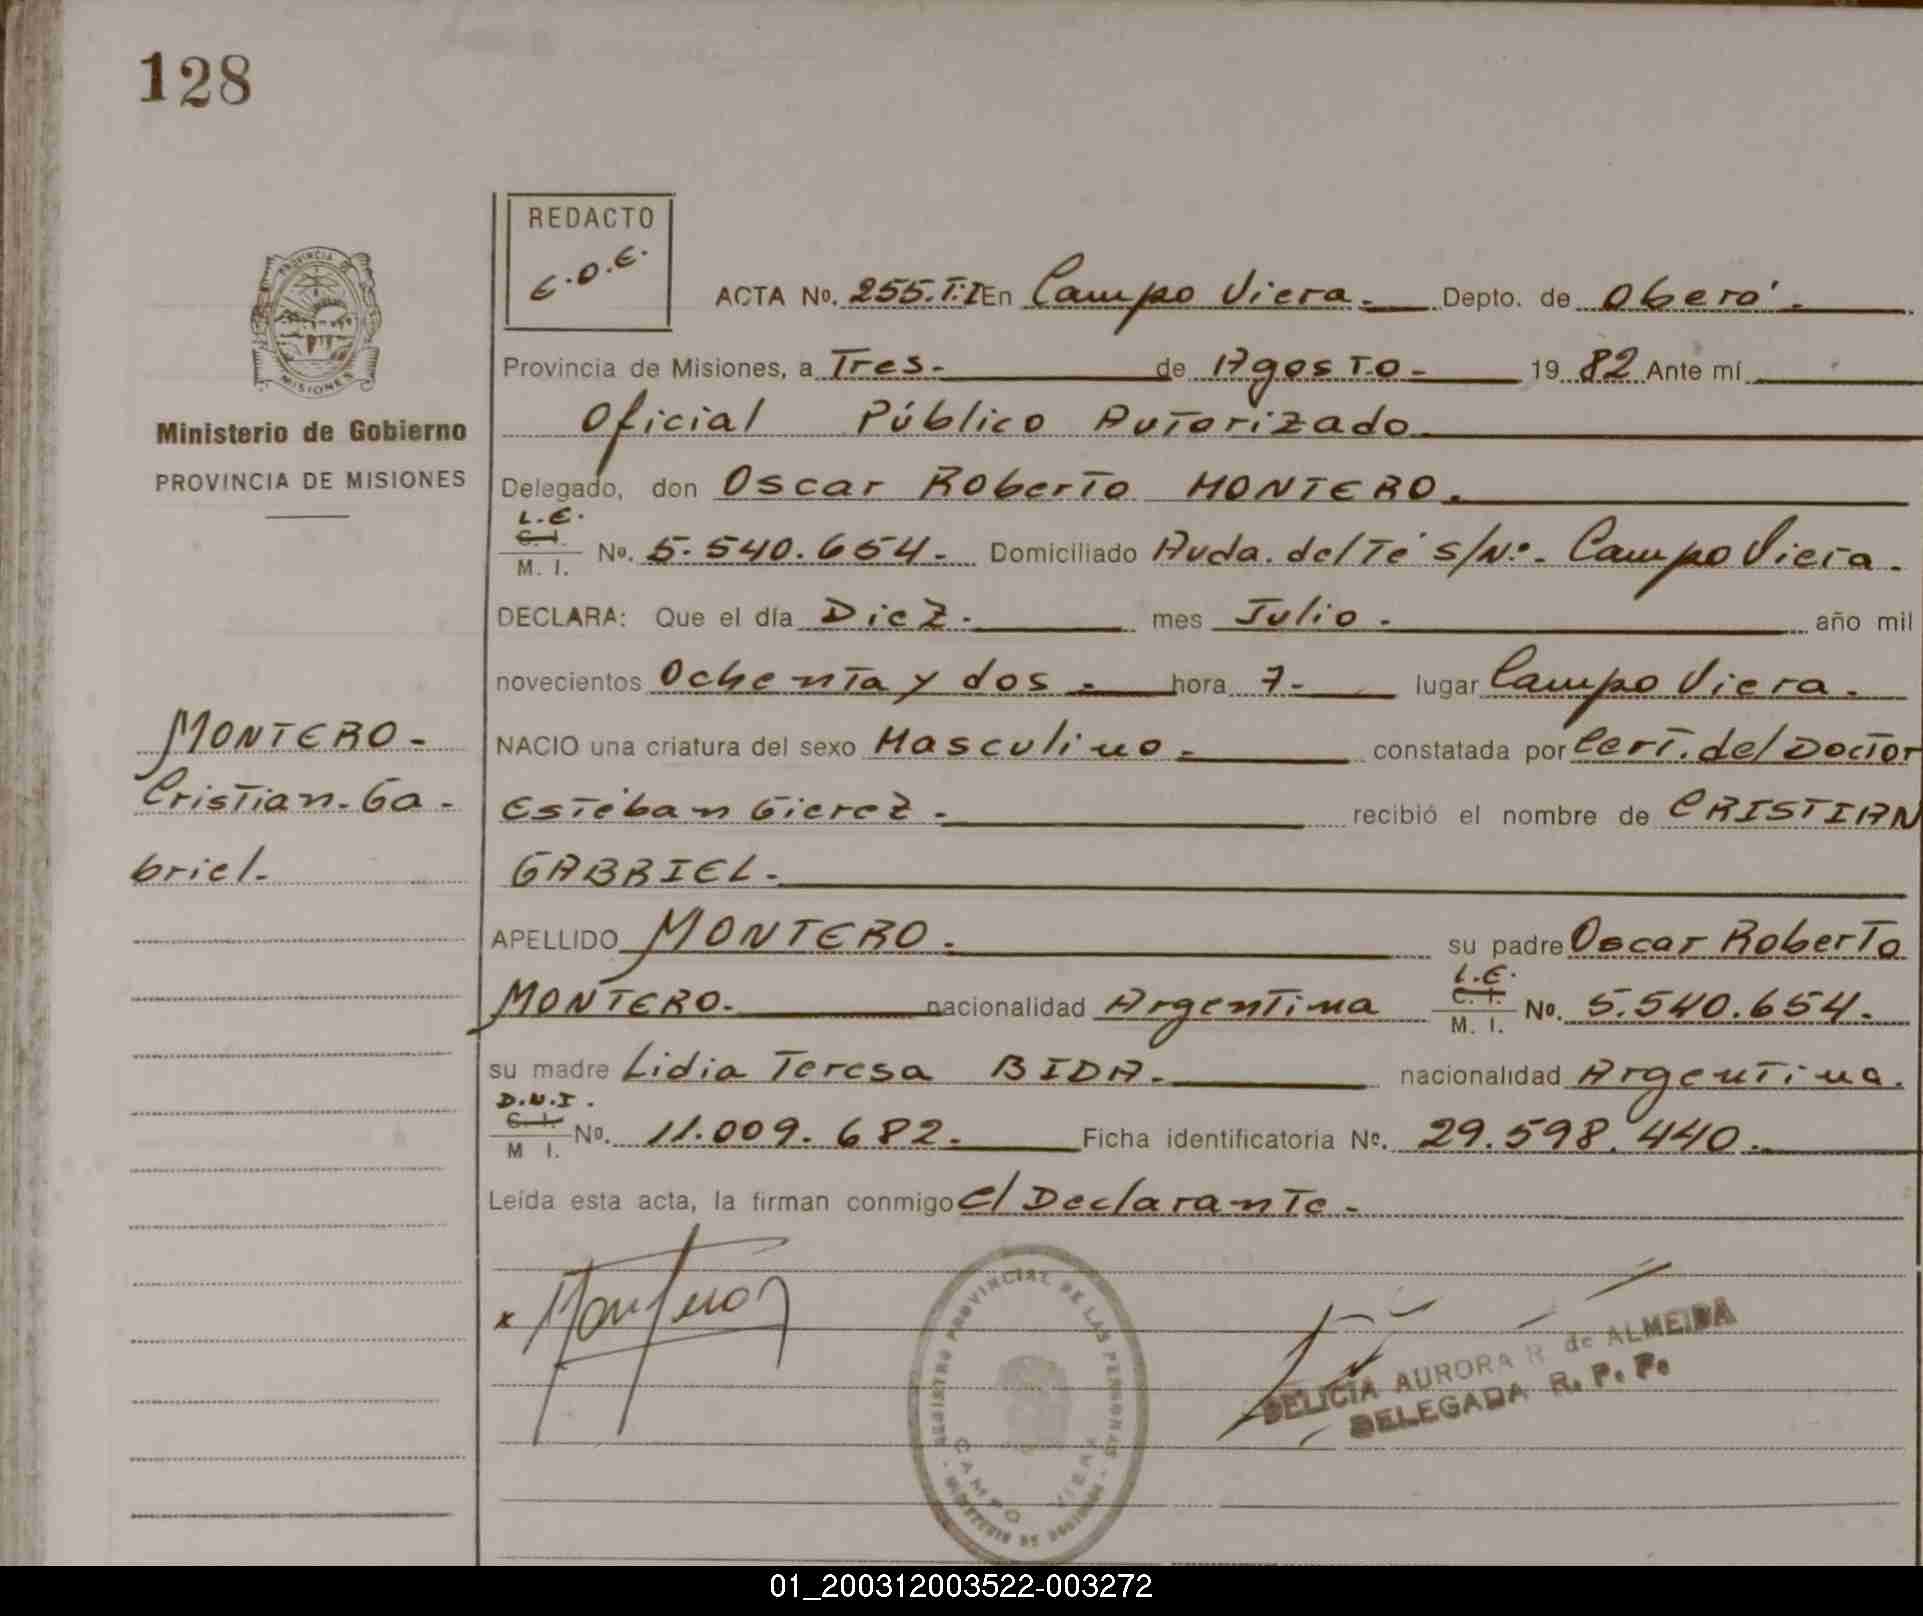 128
REDACTO
C.O.E.
PROVINCIA DE
MISIONES
Ministerio de Gobierno
PROVINCIA DE MISIONES
ACTA No. 255.T.I En Campo Viera.- Depto. de Oberá.-
Provincia de Misiones, a Tres.- de Agosto.- 19 82 Ante mí
Oficial Público Autorizado
Delegado, don Oscar Roberto MONTERO.
L.E.
C. I.
M. I. No. 5.540.654.- Domiciliado Avda. del Té s/Nº.- Campo Viera.
DECLARA: Que el día Diez.- mes Julio.- año mil
novecientos Ochenta y dos.- hora 7.- lugar Campo Viera.-
NACIO una criatura del sexo Masculino.- constatada por Cert. del Doctor
Estéban Gierez.- recibió el nombre de CRISTIAN
GABRIEL.-
APELLIDO MONTERO.- su padre Oscar Roberto
MONTERO.- nacionalidad Argentina L.E.
C. I.
M. I. No. 5.540.654.
su madre Lidia Teresa BIDA.- nacionalidad Argentina.
D.N.I.
C. I.
M I. No. 11.009.682.- Ficha identificatoria No. 29.598.440.-
Leída esta acta, la firman conmigo el Declarante.-
MONTERO-
Cristian-Ga-
briel.-
x Montero
REGISTRO PROVINCIAL DE LAS PERSONAS
CAMPO VIERA
DELICIA AURORA R de ALMEIDA
DELEGADA R. P. P.
01_200312003522-003272